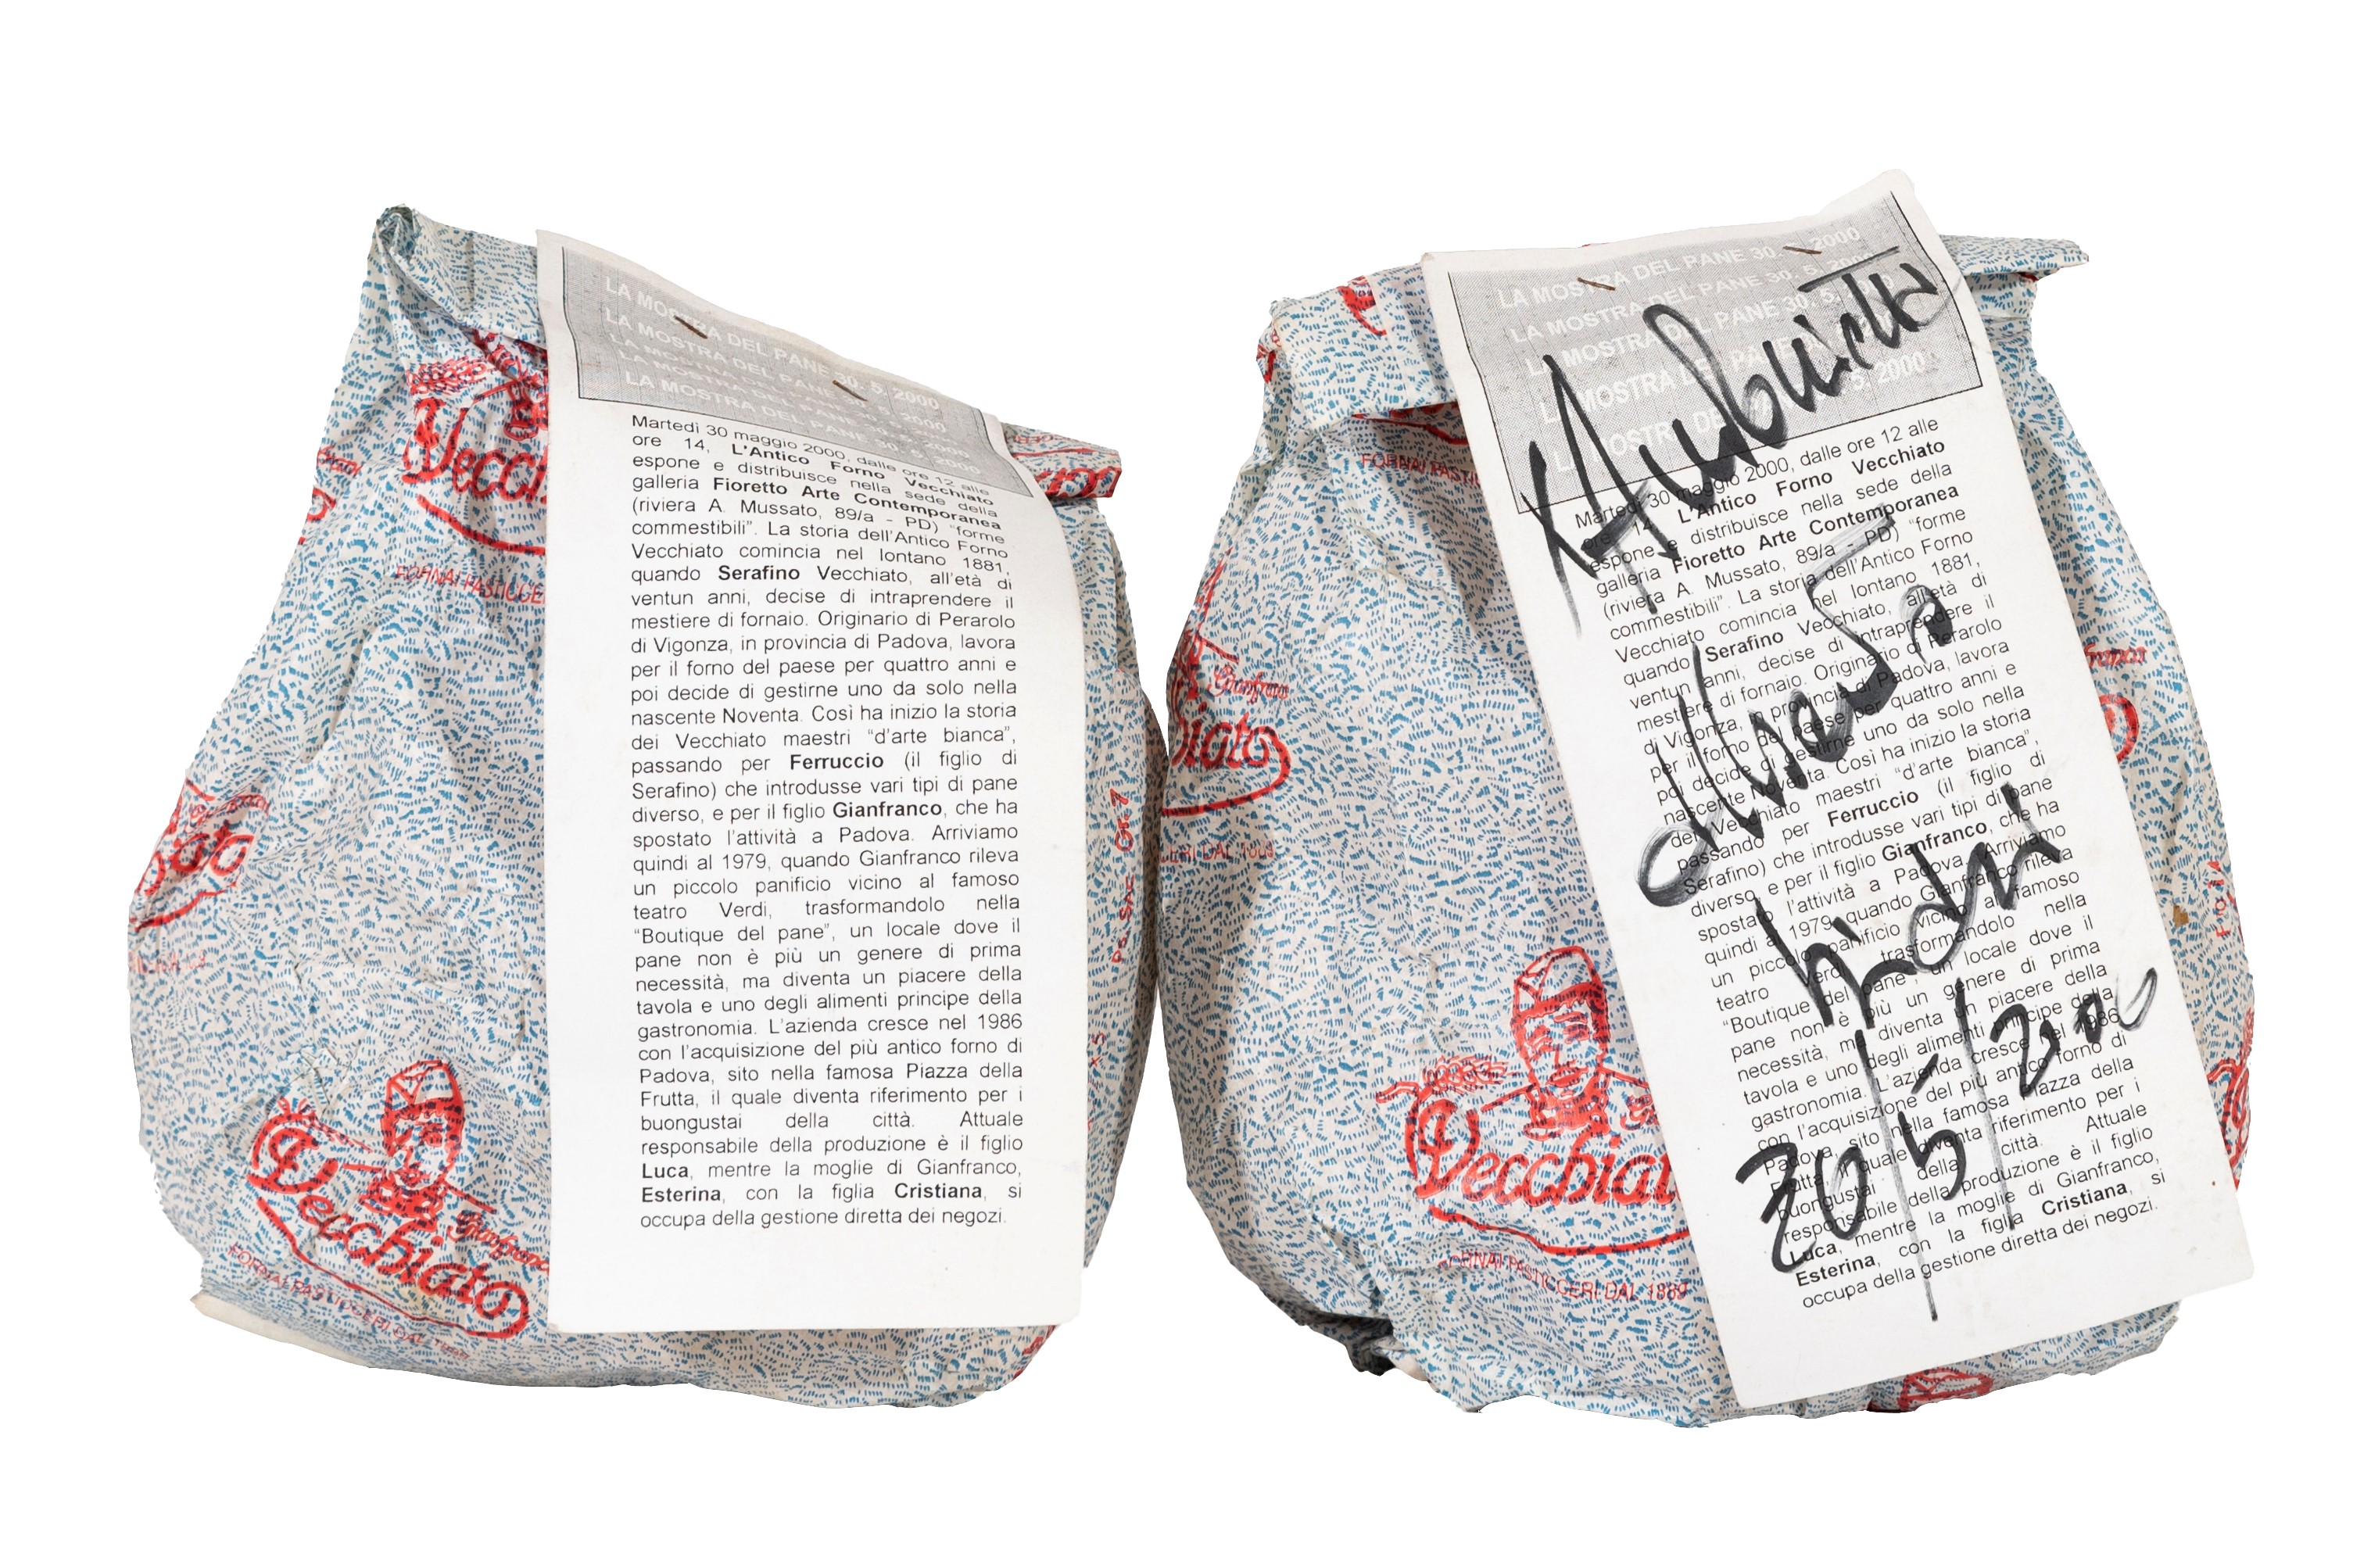 LA MOSTRA DEL PANE 30. 5. 2000
LA MOSTRA DEL PANE 30. 5. 2000
LA MOSTRA DEL PANE 30. 5. 2000
LA MOSTRA DEL PANE 30. 5. 2000
LA MOSTRA DEL PANE 30. 5. 2000
Martedì 30 maggio 2000, dalle ore 12 alle
ore 14, L'Antico Forno Vecchiato
espone e distribuisce nella sede della
galleria Fioretto Arte Contemporanea
(riviera A. Mussato, 89/a - PD) “forme
commestibili”. La storia dell'Antico Forno
Vecchiato comincia nel lontano 1881,
quando Serafino Vecchiato, all'età di
ventun anni, decise di intraprendere il
mestiere di fornaio. Originario di Perarolo
di Vigonza, in provincia di Padova, lavora
per il forno del paese per quattro anni e
poi decide di gestirne uno da solo nella
nascente Noventa. Così ha inizio la storia
dei Vecchiato maestri “d'arte bianca”,
passando per Ferruccio (il figlio di
Serafino) che introdusse vari tipi di pane
diverso, e per il figlio Gianfranco, che ha
spostato l'attività a Padova. Arriviamo
quindi al 1979, quando Gianfranco rileva
un piccolo panificio vicino al famoso
teatro Verdi, trasformandolo nella
“Boutique del pane”, un locale dove il
pane non è più un genere di prima
necessità, ma diventa un piacere della
tavola e uno degli alimenti principe della
gastronomia. L'azienda cresce nel 1986
con l'acquisizione del più antico forno di
Padova, sito nella famosa Piazza della
Frutta, il quale diventa riferimento per i
buongustai della città. Attuale
responsabile della produzione è il figlio
Luca, mentre la moglie di Gianfranco,
Esterina, con la figlia Cristiana, si
occupa della gestione diretta dei negozi.
Vecchiato
Gianfranco
FORNAI PASTICCERI DAL 1889
LA MOSTRA DEL PANE 30. 5. 2000
LA MOSTRA DEL PANE 30. 5. 2000
LA MOSTRA DEL PANE 30. 5.
LA MOSTRA DEL PANE
LA MOSTRA DEL 5. 2000
LA MOSTRA DEL
Martedì 30 maggio 2000, dalle ore 12 alle
ore 14, L'Antico Forno Vecchiato
espone e distribuisce nella sede della
galleria Fioretto Arte Contemporanea
(riviera A. Mussato, 89/a - PD) “forme
commestibili”. La storia dell'Antico Forno
Vecchiato comincia nel lontano 1881,
quando Serafino Vecchiato, all'età di
ventun anni, decise di intraprendere il
mestiere di fornaio. Originario di Perarolo
di Vigonza, in provincia di Padova, lavora
per il forno del paese per quattro anni e
poi decide di gestirne uno da solo nella
nascente Noventa. Così ha inizio la storia
dei Vecchiato maestri “d'arte bianca”,
passando per Ferruccio (il figlio di
Serafino) che introdusse vari tipi di pane
diverso, e per il figlio Gianfranco, che ha
spostato l'attività a Padova. Arriviamo
quindi al 1979, quando Gianfranco rileva
un piccolo panificio vicino al famoso
teatro Verdi, trasformandolo nella
“Boutique del pane”, un locale dove il
pane non è più un genere di prima
necessità, ma diventa un piacere della
tavola e uno degli alimenti principe della
gastronomia. L'azienda cresce nel 1986
con l'acquisizione del più antico forno di
Padova, sito nella famosa Piazza della
Frutta, il quale diventa riferimento per i
buongustai della città. Attuale
responsabile della produzione è il figlio
Luca, mentre la moglie di Gianfranco,
Esterina, con la figlia Cristiana, si
occupa della gestione diretta dei negozi.
30/5/200
Vecchiat
FORNAI PASTICCERI DAL 1889